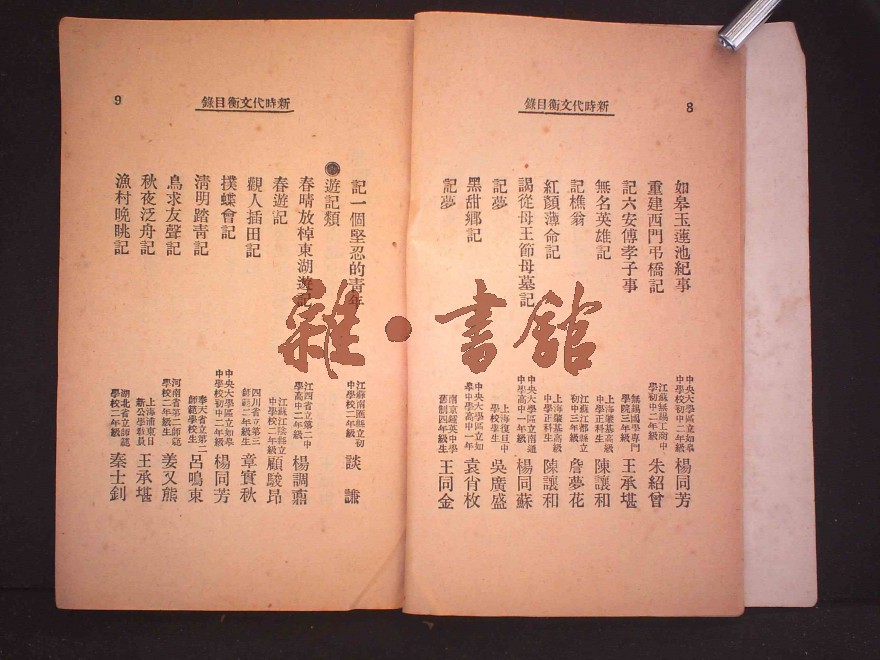 新時代文衡目錄
8
如皋玉蓮池紀事
中央大學區立如皋中學校初中二年級
楊同芳
重建西門弔橋記
江蘇無錫工商中學初中二年級
朱紹曾
記六安傅孝子事
無錫國學專門學院三年級
王承堪
無名英雄記
上海肇基高級中學正科生
陳讓和
記樵翁
江蘇江都縣立初中三年級
詹夢花
紅顏薄命記
上海肇基高級中學正科生
陳讓和
謁從母王節母墓記
中央大學區立南通中學高中一年級
楊同蘇
記夢
上海復旦中學校學生
吳廣盛
黑甜鄉記
中央大學區立如皋中學高中一年
袁肖枚
記夢
南京鍾英中學舊制四級生
王同金
新時代文衡目錄
9
記一個堅忍的青年
江蘇南匯縣立初中學校二年級
談謙
遊記類
春晴放棹東湖遊記
江西省立第二中學高中二年級
楊調鼐
春遊記
江蘇江陰縣立中學校二年級
顧駿昂
觀人插田記
四川省立第三師範二年級
章實秋
撲蝶會記
中央大學區立如皋中學校初中二年級
楊同芳
清明踏青記
奉天省立第二師範學校生
呂鳴東
鳥求友聲記
河南省第二師範學校二年級生
姜又熊
秋夜泛舟記
上海浦東日新公學教員
王承堪
漁村晚眺記
湖北省立師範學校二年級
秦士釗
雜·書館